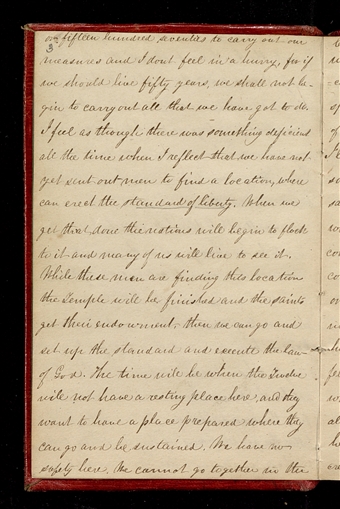 or fifteen hundred seventies to carry out our
3
measures and I dont feel in a hurry, for if
we should live fifty years, we shall not be-
gin to carry out all that we have got to do.
I feel as though there was something deficient
all the time when I reflect that we have not
yet sent out men to find a location, where
can erect the standard of liberty. When we
get that done the nations will begin to flock
to it and many of us will live to see it.
While these men are finding this location
the Temple will be finished and the saints
get their endowment, then we can go and
set up the standard and execute the law
of God. The time will be when the Twelve
will not have a resting place here, and they
want to have a place prepared where they
can go and be sustained. We have no
safety here. We cannot go together in the